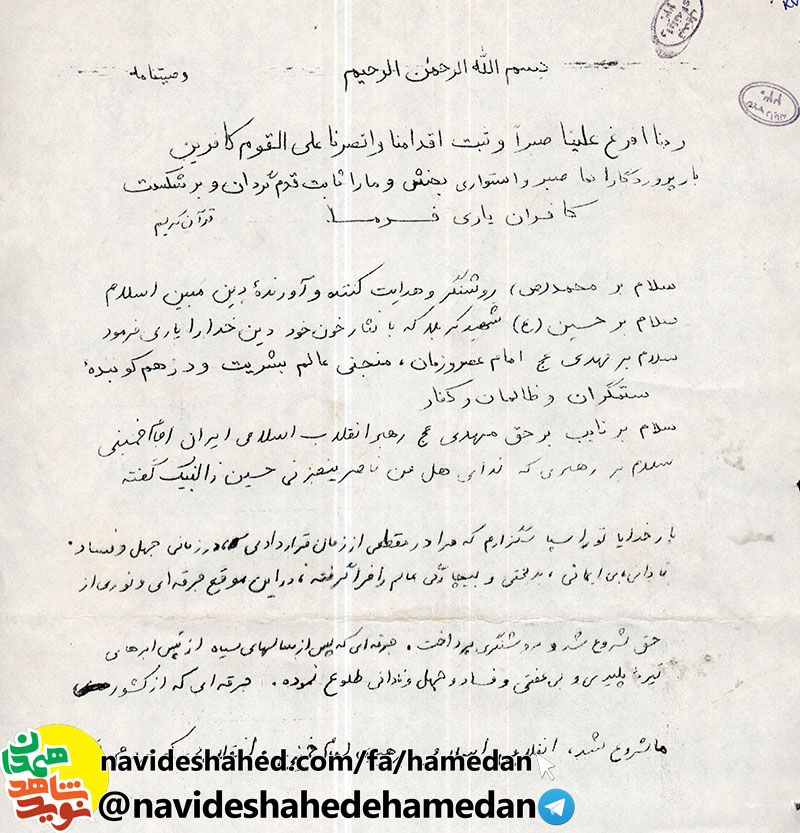 بسم الله الرحمن الرحیم
وصیتنامه
ربنا افرغ علینا صبراً و ثبت اقدامنا وانصرنا علی القوم کافرین
بار پروردگارا بما صبر و استواری بخش و ما را ثابت قدم گردان و بر شکست
کافران یاری فرما. قرآن کریم
سلام بر محمد (ص) روشنگر و هدایت کننده و آورندهٔ دین مبین اسلام
سلام بر حسین (ع) شهید کربلا که با نثار خون خود دین خدا را یاری فرمود
سلام بر مهدی عج امام عصر و زمان، منجی عالم بشریت و درهم کوبیدهٔ
ستمگران و ظالمان و کفار
سلام بر نایب بر حق مهدی عج رهبر انقلاب اسلامی ایران امام خمینی
سلام بر رهبری که ندای هل من ناصر ینصرنی حسین را لبیک گفته
بار خدایا تو را سپاسگزارم که مرا در مقطعی از زمان قرار دادی که در زمانی جهل و فساد.
نادانی، بی ایمانی، بدبختی و بیچارگی عالم را فرا گرفته، در این موقع جرقه ای و نوری از
حق شروع شد و به روشنگری پرداخت. جرقه ای که پس از سالهای سیاه از پس ابرهای
تیرهٔ پلیدی و بی عفتی و فساد و جهل و نادانی طلوع نموده. جرقه ای که از کشور
ما شروع شد، انقلاب
نوید شاهد همدان
navideshahed.com/fa/hamedan
@navideshahedehamedan